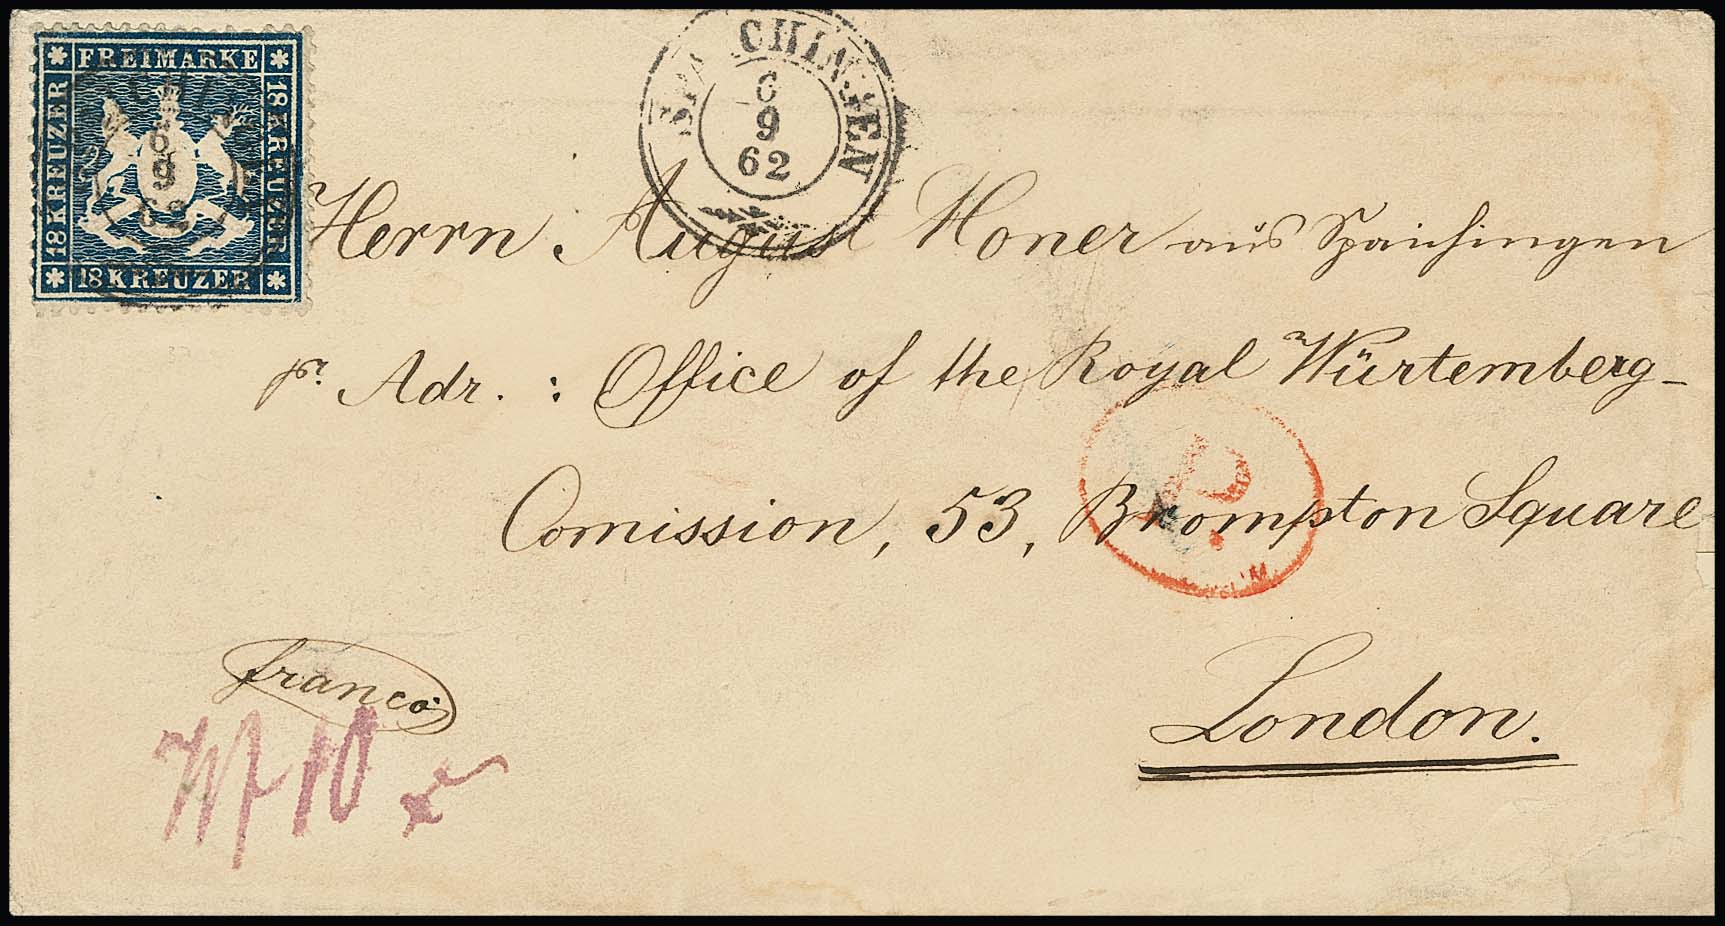 FREIMARKE
18 KREUZER
18 KREUZER
18 KREUZER
SPAICHINGEN
6
9
62
Herrn August Honer aus Spaichingen
pr. Adr. : Office of the Royal Würtemberg-
Comission, 53, Brompton Square
London.
P.
franco
Wf 10 x